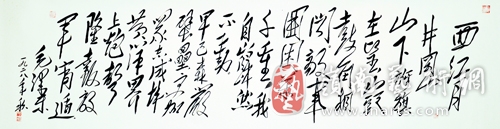 西江月
井岡山
山下旌旗
在望山头
鼓角相
闻敌军
围困万
千重我
自岿然
不动
早已森严
壁垒更加
众志成城
黄洋界
上炮声
隆报道敌
军宵遁
毛泽东
藝